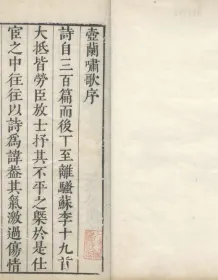 壺蘭嘯歌序
詩自三百篇而後下至離騷蘇李十九首
大抵皆勞臣放士抒其不平之槩於是仕
宦之中往往以詩為諱蓋其氣激過傷情